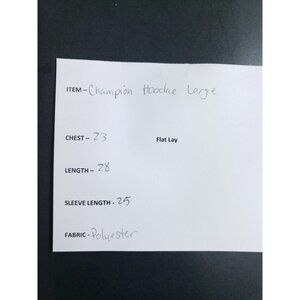 ITEM – Champion Hoodie Large
CHEST - 23 Flat Lay
LENGTH - 28
SLEEVE LENGTH - 25
FABRIC - Polyester